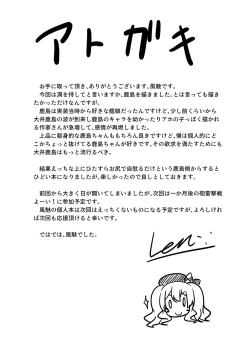 アトガキ
お手に取って頂き、ありがとうございます。風魅です。
今回は満を持してと言いますか、鹿島を描きました。とは言っても描き
たかっただけなんですが。
鹿島は実装当時から好きな艦娘だったんですけど、少し前くらいから
大井鹿島の波が到来し鹿島のキャラを幼かったりアホの子っぽく描かれ
る作家さんが急増して、感情が再燃しました。
上品に献身的な鹿島ちゃんももちろん良きですけど、僕は個人的にど
こかちょっと抜けてる鹿島ちゃんが好きです。その欲求を満たすためにも
大井鹿島はもっと流行るべき。
結果えっちな上にひたすらお尻で自慰るだけという鹿島側からすると
ひどい本になりましたが、楽しかったので良しとしておきます。
前回から大きく日が開いてしまいましたが、次回は一か月後の砲雷撃戦
よーい!に参加予定です。
風魅の個人本は次回はえっちくないものになる予定ですが、よろしけれ
ば次回も応援頂けると幸いです。
ではでは、風魅でした。
Len